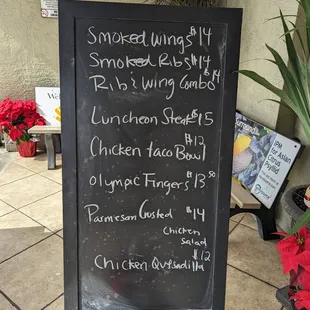 Smoked Wings $14
Smoked Ribs $14
Rib & Wing Combo $14
Luncheon Steak $15
$12
Chicken taco Bowl
Olympic Fingers $13 50
Parmesan Crusted $14
Chicken
Salad
$12
Chicken Quesadilla
IPM
for Asian
Citrus
Psyllid